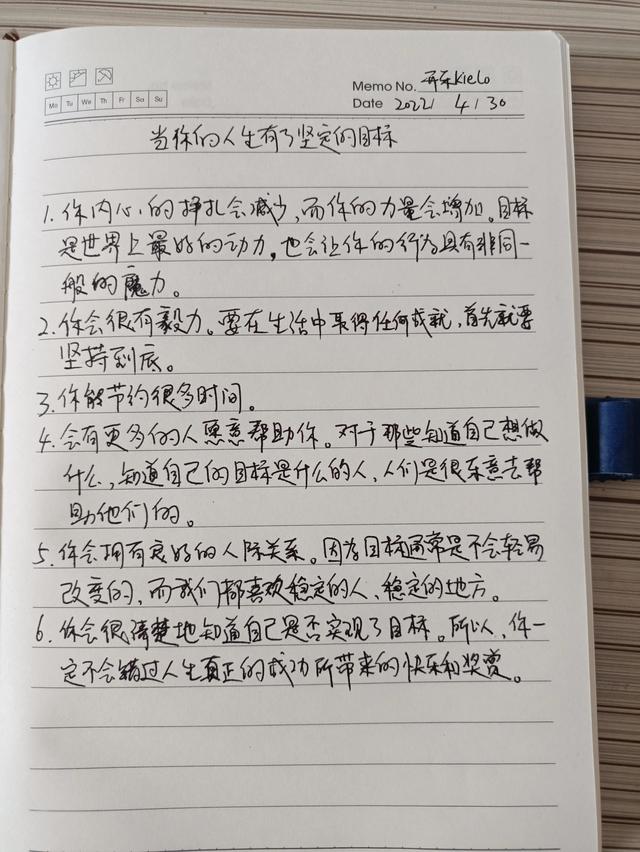 Memo No. 开乐Kielo
Mo Tu We Th Fr Sa Su
Date 2022 / 4 / 30
当你的人生有了坚定的目标
1. 你内心的挣扎会减少,而你的力量会增加。目标
是世界上最好的动力,也会让你的行为具有非同一
般的魔力。
2. 你会很有毅力。要在生活中取得任何成就,首先就要
坚持到底。
3. 你能节约很多时间。
4. 会有更多的人愿意帮助你。对于那些知道自己想做
什么,知道自己的目标是什么的人,人们是很乐意去帮
助他们的。
5. 你会拥有良好的人际关系。因为目标通常是不会轻易
改变的,而我们都喜欢稳定的人、稳定的地方。
6. 你会很清楚地知道自己是否实现了目标。所以,你一
定不会错过人生真正的成功所带来的快乐和奖赏。